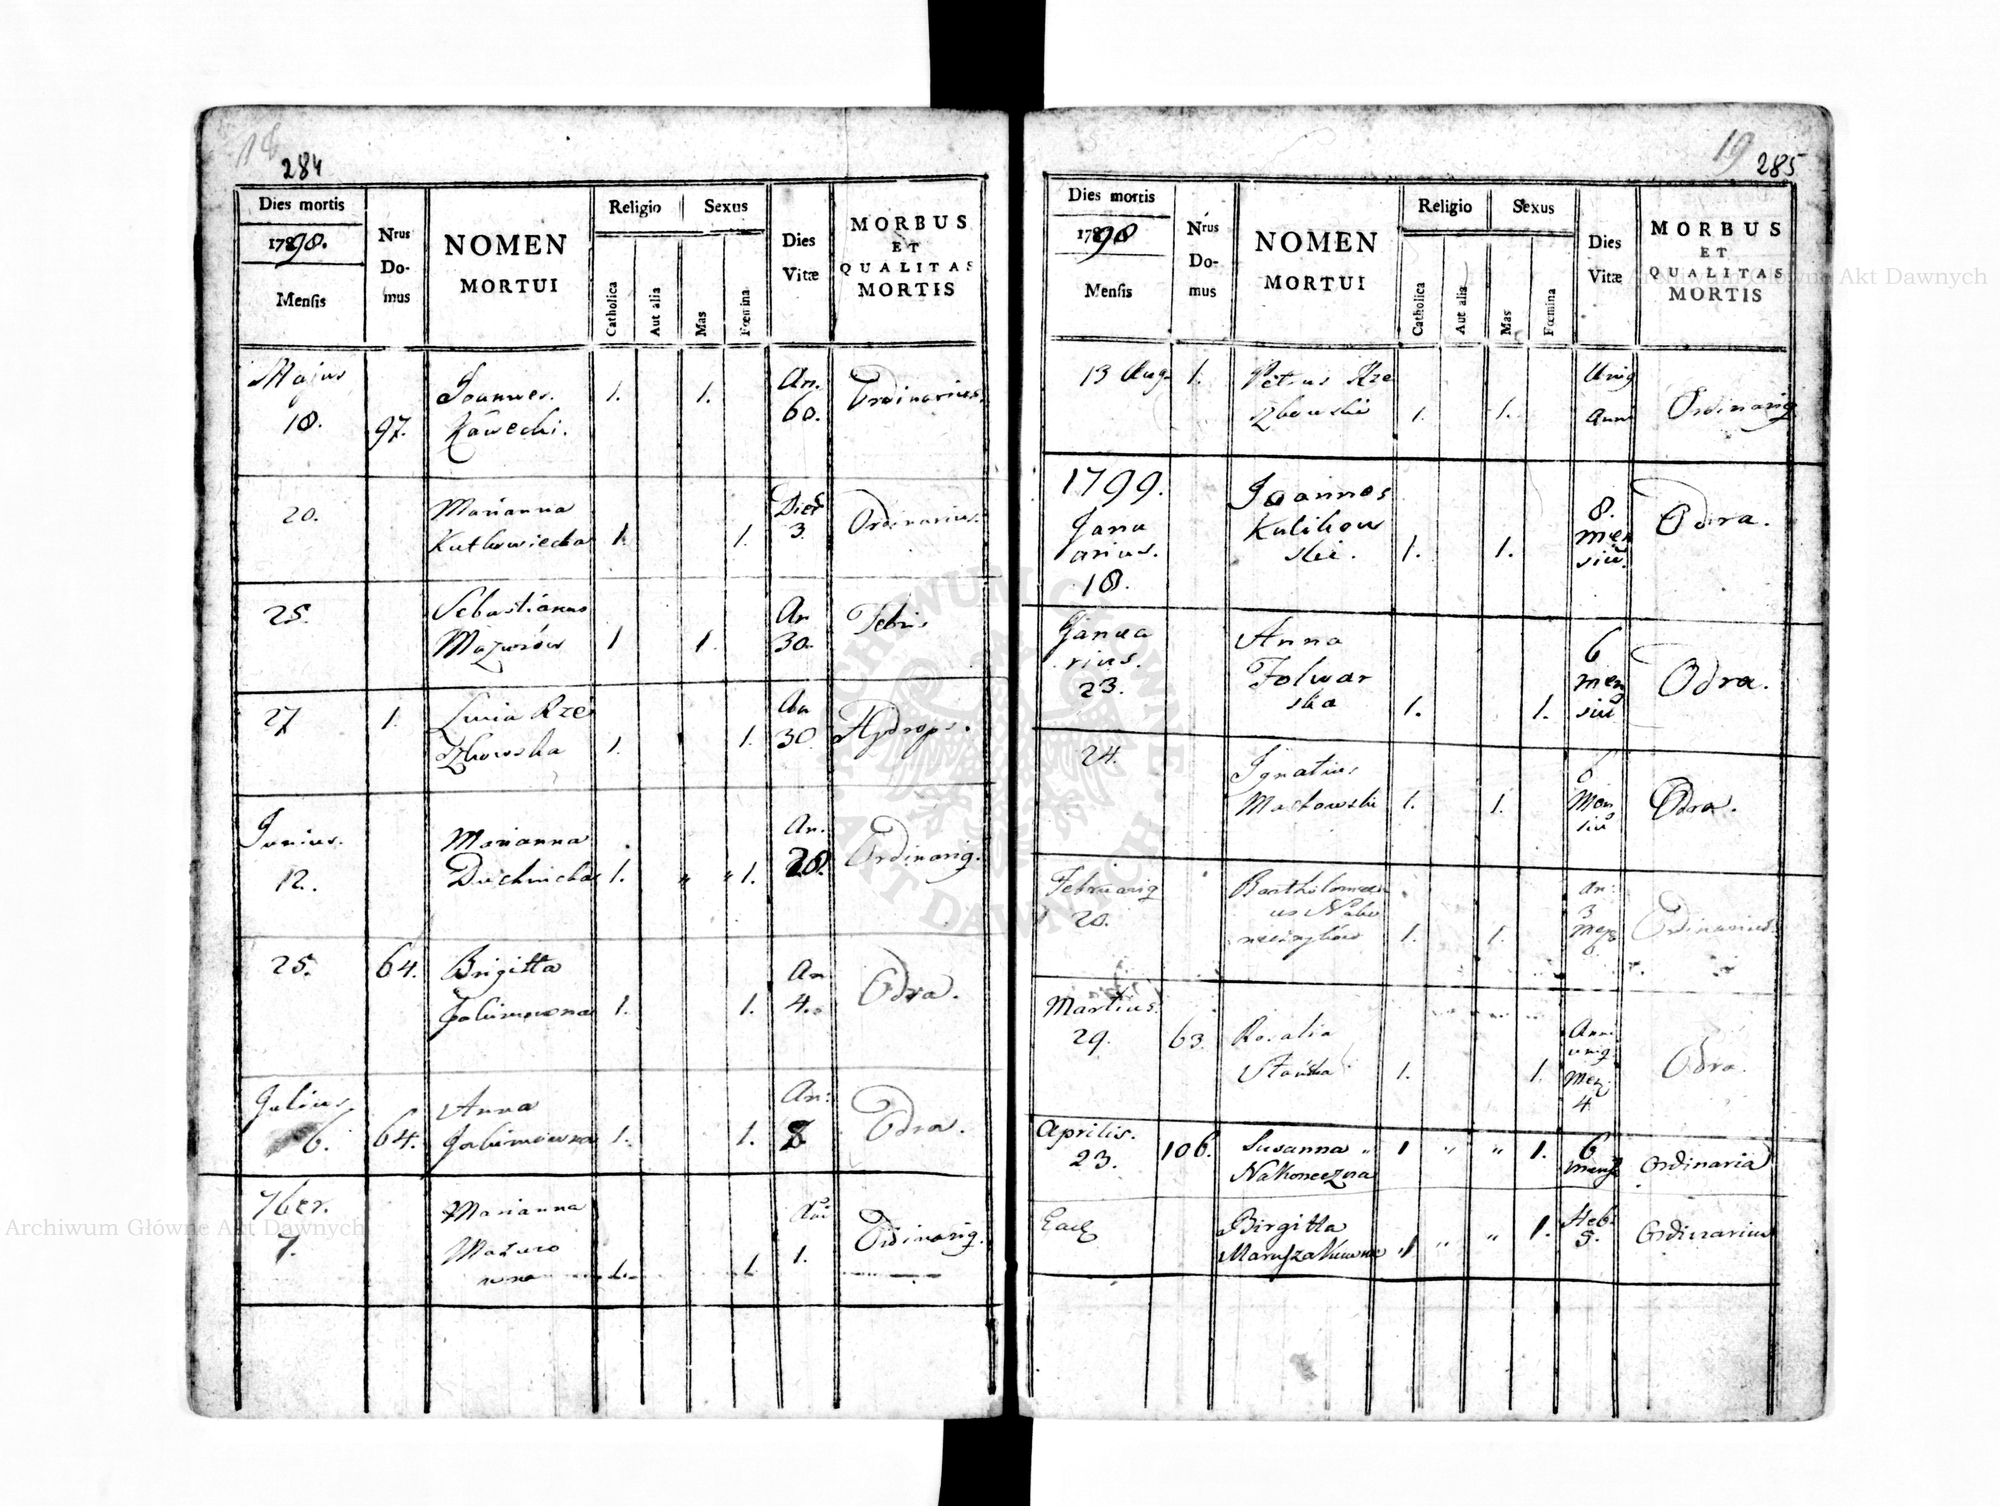 18
284
Dies mortis
1798.
Mensis
Nrus
Do-
mus
NOMEN
MORTUI
Religio
Sexus
Catholica
Aut alia
Mas
Fœmina
Dies
Vitæ
MORBUS
ET
QUALITAS
MORTIS
Majus
18.
97.
Joannes
Kawecki.
1.
1.
An.
60.
Ordinarius.
20.
Marianna
1.
1.
Dies
3.
Ordinarius.
25.
Sebastianus
Mazurów
1
1.
An
30.
Febris
27
1.
Lucia Rze
zbowska
1.
1.
An
30
Hydrops.
Junius.
12.
Marianna
1.
„
„ 1.
An.
28.
Ordinarig.
25.
64.
Brigitta
1.
1.
An
4.
Odra.
Julius
6.
64.
Anna
1.
1.
An:
8
Odra.
7ber.
7.
Marianna
Mazuro
wna
1.
1
1.
Ordinarig.
19
285
Dies mortis
1798
Mensis
Nrus
Do-
mus
NOMEN
MORTUI
Religio
Sexus
Catholica
Aut alia
Mas
Fœmina
Dies
Vitæ
MORBUS
ET
QUALITAS
MORTIS
13 Aug.
1.
Petrus Rze
zbowski
1.
1.
Unig
Ann
Ordinarig
1799.
Janu
arius.
18.
Joannes
Kulikow
ski.
1.
1.
8.
men
siu
Odra.
Janua
rius.
23.
Anna
Folwar
ska
1.
1.
6
men
siu
Odra.
24.
Ignatius
Markowski
1.
1.
6
Men
siu
Odra.
Februarig
20.
Bartholomae
us Nako
1.
1.
An:
3
Mens
6
Ordinarius.
Martius
29.
63.
Rosalia
1.
1.
Ann
unig
Men:
4
Odra.
Aprilis.
23.
106.
Susanna „
Nakoneczna
1
„
„
1.
6
mens
Ordinaria
Ead
Birgitta
Maruszakiewna
„1
„
„
1.
Heb:
5.
Ordinarius
Archiwum Główne Akt Dawnych
Archiwum Główne Akt Dawnych
ARCHIWUM GŁÓWNE AKT DAWNYCH